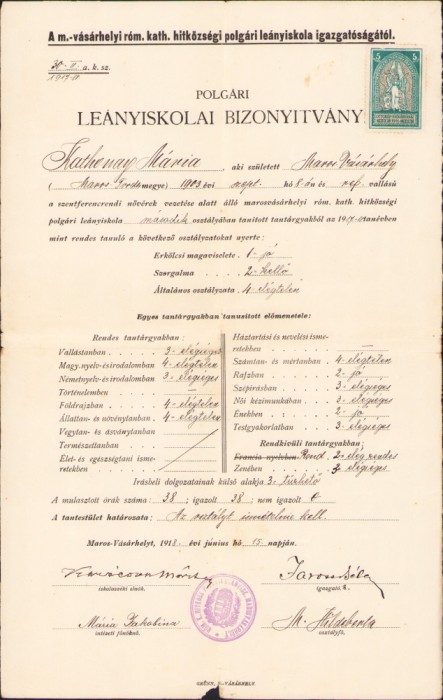 A m.-vásárhelyi róm. kath. hitközségi polgári leányiskola igazgatóságától.
a. k. sz.
5 5
POLGÁRI
LEÁNYISKOLAI BIZONYITVÁNY
Kathonay Mária aki született Maros Vásárhely
(Maros-Torda megye) 1903 évi szept. hó 8-án és ref. vallású
a szentferencrendi nővérek vezetése alatt álló marosvásárhelyi róm. kath. hitközségi
polgári leányiskola második osztályában tanitott tantárgyakból az 1917-18 tanévben
mint rendes tanuló a következő osztályzatokat nyerte:
Erkölcsi magaviselete 1- jó
Szorgalma 2- kellő
Általános osztályzata 4- elégtelen
Egyes tantárgyakban tanusitott előmenetele:
Rendes tantárgyakban:
Vallástanban . . . . 3- elégséges
Magy. nyelv- és irodalomban 4- elégtelen
Németnyelv- és irodalomban 3- elégséges
Történelemben . . .
Földrajzban . . . . 4- elégtelen
Állattan- és növénytanban . 4- elégtelen
Vegytan- és ásványtanban
Természettanban . . .
Élet- és egészségtani isme-
retekben . . . .
Háztartási és nevelési isme-
retekben . . . .
Számtan- és mértanban . 4- elégtelen
Rajzban . . . . 2- jó
Szépirásban . . . . 3- elégséges
Női kézimunkában . . 3- elégséges
Énekben . . . . 2- jó
Testgyakorlatban . . . 3- elégséges
Rendkivüli tantárgyakban:
Francia nyelvben Rend. 2- elég rendes
Zenében . . . . 3- elégséges
Irásbeli dolgozatainak külső alakja 3- türhető
A mulasztott órák száma: 38; igazolt 38; nem igazolt 0
A tantestület határozata: Az osztályt ismételnie kell.
Maros-Vásárhelyt, 1918. évi június hó 15. napján.
iskolaszéki elnök.
igazgató
Mária Jakobina
intézeti főnöknő.
M. Hildeberta
osztályfő.